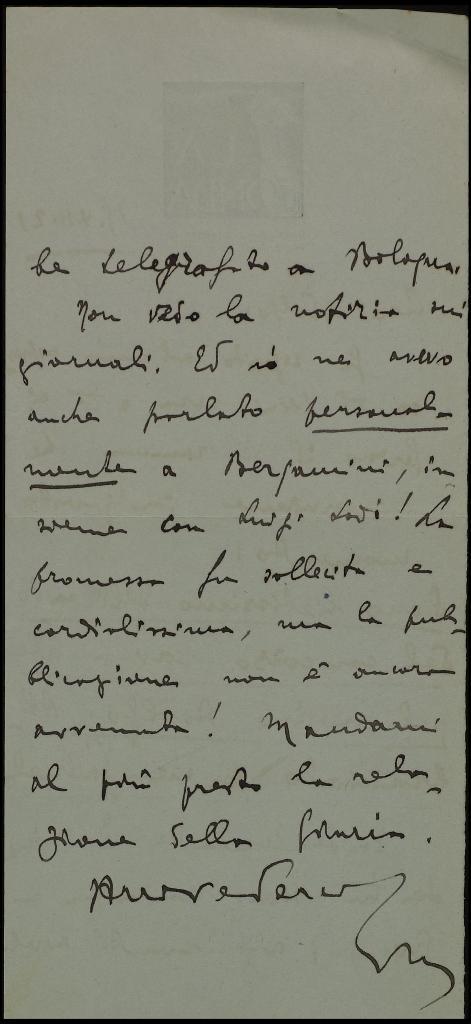 ho telegrafato a Bologna.
Non vedo la notizia sui
giornali. Ed io ne avevo
anche parlato personal-
mente a Bergamini, in
sieme con Luigi Lodi! La
promessa fu sollecita e
cordialissima, ma la pub-
blicazione non è ancora
avvenuta! Mandami
al più presto la rela-
zione della Giuria.
Arrivederci